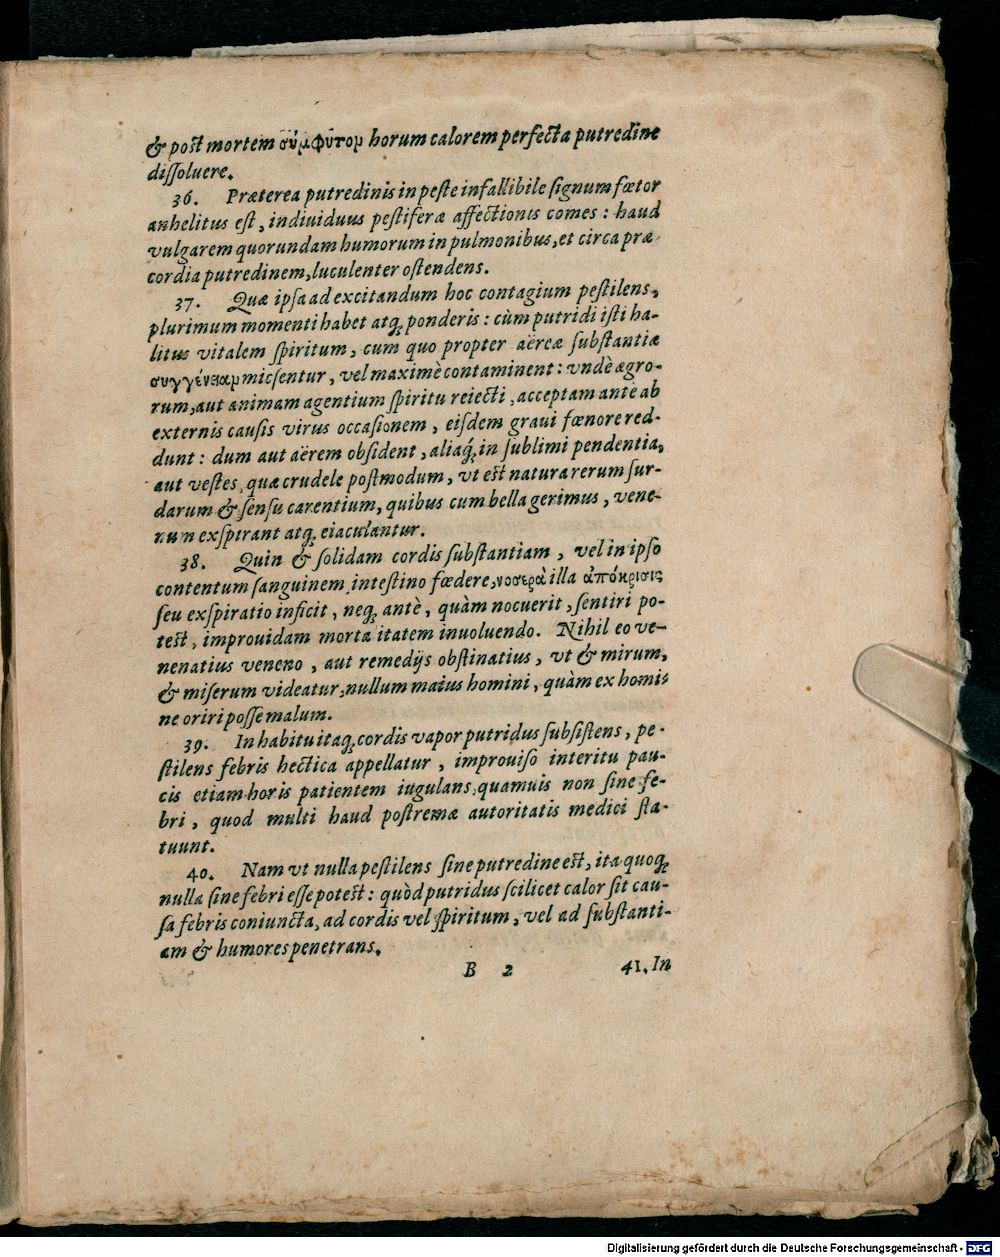 & post mortem σύμφυτομ horum calorem perfecta putredine
dissoluere.
36. Præterea putredinis in peste infallibile signum fœtor
anhelitus est, indiuiduus pestiferæ affectionis comes : haud
vulgarem quorundam humorum in pulmonibus, et circa præ
cordia putredinem, luculenter ostendens.
37. Quæ ipsa ad excitandum hoc contagium pestilens,
plurimum momenti habet atq; ponderis : cùm putridi isti ha-
litus vitalem spiritum, cum quo propter aëreæ substantiæ
συγγένειαμ micsentur, vel maximè contaminent : vndè ægro-
rum, aut animam agentium spiritu reiecti, acceptam antè ab
externis causis virus occasionem, eisdem graui fœnore red-
dunt : dum aut aërem obsident, aliaq́; in sublimi pendentia,
aut vestes, quæ crudele postmodum, vt est natura rerum sur-
darum & sensu carentium, quibus cum bella gerimus, vene-
num exspirant atq; eiaculantur.
38. Quin & solidam cordis substantiam, vel in ipso
contentum sanguinem intestino fœdere, νοσερὰ illa ἀπόκρισις
seu exspiratio inficit, neq; antè, quàm nocuerit, sentiri po-
test, improuidam morta itatem inuoluendo. Nihil eo ve-
nenatius veneno, aut remedijs obstinatius, vt & mirum,
& miserum videatur, nullum maius homini, quàm ex homi-
ne oriri posse malum.
39. In habitu itaq; cordis vapor putridus subsistens, pe-
stilens febris hectica appellatur, improuiso interitu pau-
cis etiam horis patientem iugulans, quamuis non sine fe-
bri, quod multi haud postremæ autoritatis medici sta-
tuunt.
40. Nam vt nulla pestilens sine putredine est, ita quoq;
nulla sine febri esse potest : quòd putridus scilicet calor sit cau-
sa febris coniuncta, ad cordis vel spiritum, vel ad substanti-
am & humores penetrans.
B 2 41. In
Digitalisierung gefördert durch die Deutsche Forschungsgemeinschaft - DFG